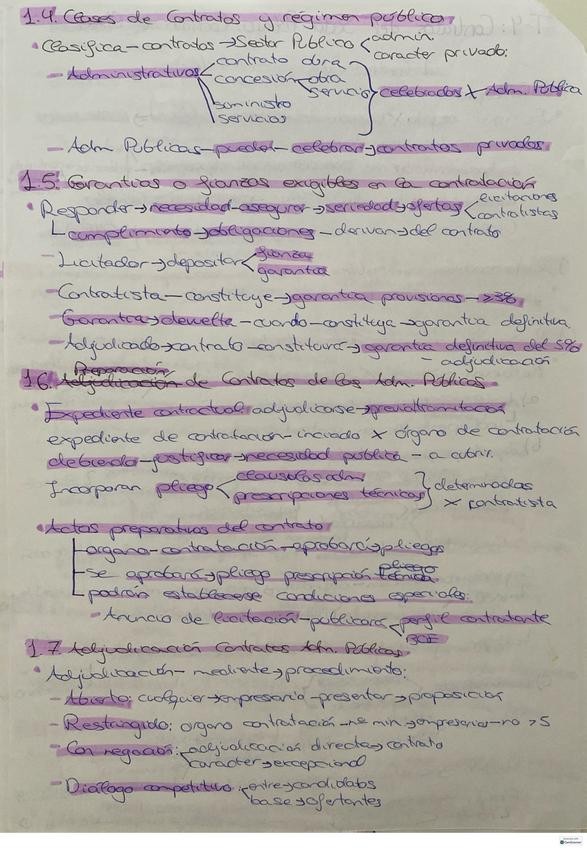 1.4. Clases de Contratos y régimen público
• Clasifica – contratos → Sector Público < admin.
carácter privado:
– Administrativos < contrato obra
concesión – obra
servicio } celebrados x Adm. Pública
suministro
servicios
– Adm Públicas – pueden – celebrar → contratos privados
1.5. Garantías o fianzas exigibles en la contratación
• Responder → necesidad – asegurar → seriedad → ofertas < licitaciones
contratistas
└ cumplimiento → obligaciones – derivan → del contrato
– Licitador → depositar < fianza
garantía
– Contratista – constituye → garantía provisional → ≥3%
– Garantía → devuelta – cuando – constituya → garantía definitiva
– Adjudicado → contrato – constituirá → garantía definitiva del 5%
– adjudicación
Preparación
1.6. Adjudicación de Contratos de las Adm. Públicas
• Expediente contractual adjudicarse → previa tramitación
expediente de contratación – iniciado x órgano de contratación
debiendo – justificar → necesidad pública – a cubrir.
Incorporan pliego < cláusulas adm
prescripciones técnicas } determinadas
x contratista
• Actos preparativos del contrato
– órgano – contratación – aprobará → pliegos
pliego
– se aprobará → pliego prescripción técnica
└ podrán establecerse condiciones especiales:
– Anuncio de licitación – publicará < perfil contratante
BOE
1.7 Adjudicación Contratos Adm. Públicas
• Adjudicación – mediante → procedimiento:
– Abierto: cualquier → empresario – presentar → proposición
– Restringido: órgano contratación – nº min → empresarios – no >5
– Con negocián: adjudicación directa → contrato
carácter → excepcional
– Diálogo competitivo: entre → candidatos
base → ofertantes